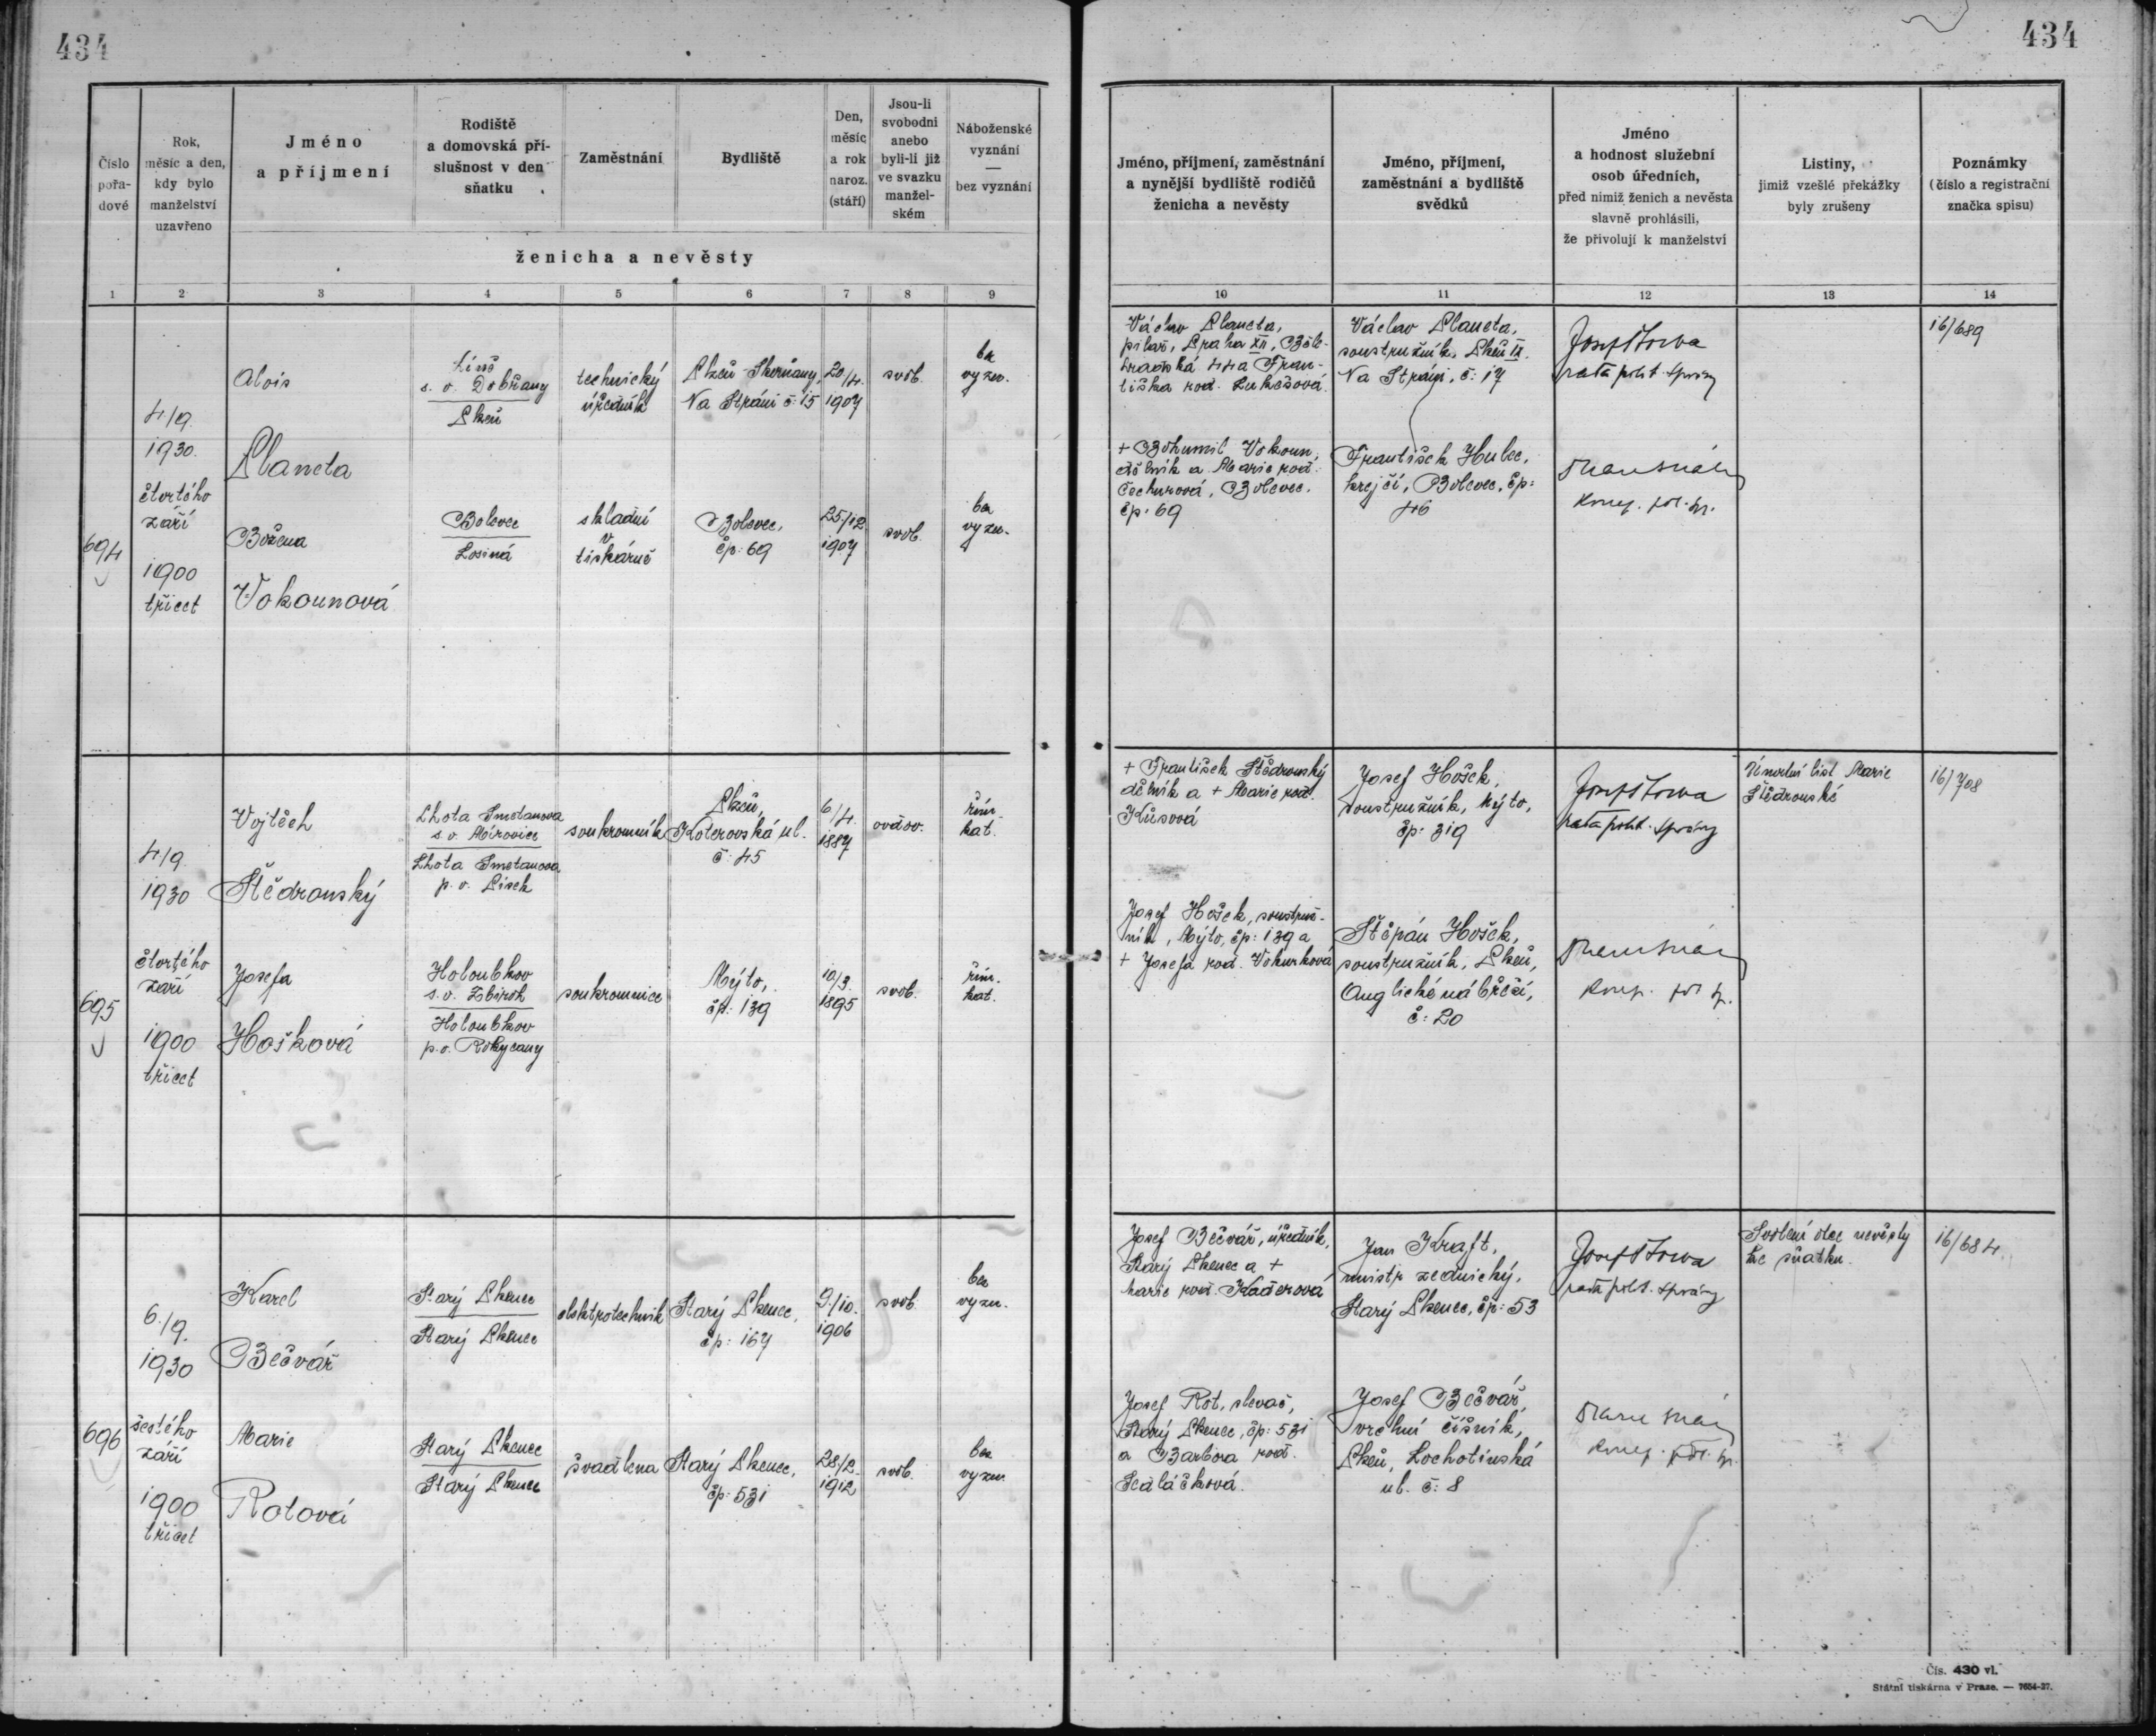 434
434
Číslo
pořa-
dové
Rok,
měsíc a den,
kdy bylo
manželství
uzavřeno
Jméno
a příjmení
Rodiště
a domovská pří-
slušnost v den
sňatku
Zaměstnání
Bydliště
Den,
měsíc
a rok
naroz.
(stáří)
Jsou-li
svobodni
anebo
byli-li již
ve svazku
manžel-
ském
Náboženské
vyznání
—
bez vyznání
ženicha a nevěsty
Jméno, příjmení, zaměstnání
a nynější bydliště rodičů
ženicha a nevěsty
Jméno, příjmení,
zaměstnání a bydliště
svědků
Jméno
a hodnost služební
osob úředních,
před nimiž ženich a nevěsta
slavně prohlásili,
že přivolují k manželství
Listiny,
jimiž vzešlé překážky
byly zrušeny
Poznámky
(číslo a registrační
značka spisu)
1 2 3 4 5 6 7 8 9 10 11 12 13 14
694
4/9.
1930.
čtvrtého
září
1900
třicet
Alois
Planeta
Líně
s. o. Dobřany
Plzeň
technický
úředník
Plzeň-Skvrňany,
Na Stráni č: 15
20/4.
1907
svob.
bez
vyzn.
Božena
Vokounová
Bolevec
Losiná
skladní
v
tiskárně
Bolevec,
čp: 69
25/12.
1907
svob.
bez
vyzn.
Václav Planeta,
pilař, Praha XII, Běle-
hradská 44 a Fran-
tiška roz. Lukešová.
Václav Planeta,
soustružník, Plzeň IX.
Na Stráni, č: 17
Josef
rada polit. správy
16/689
+ Bohumil Vokoun,
dělník a Marie roz.
Čechurová, Bolevec.
čp: 69
František Hulec,
krejčí, Bolevec, čp:
46
695
4/9.
1930
čtvrtého
září
1900
třicet
Vojtěch
Štědronský
Lhota Smetanova
s. o. Mirovice
Lhota Smetanova
p. o. Písek
soukromník
Plzeň,
Koterovská ul.
č: 45
6/4.
1887
ovdov.
řím.
kat.
Josefa
Hošková
Holoubkov
s. o. Zbiroh
Holoubkov
p. o. Rokycany
soukromnice
Mýto,
čp: 139
10/3.
1895
svob.
řím.
kat.
+ František Štědronský
dělník a + Marie roz.
Kůsová
Josef Hošek,
soustružník, Mýto,
čp: 319
Josef
rada polit. správy
Úmrtní list Marie
Štědronské
16/708
Josef Hošek, soustruž-
ník, Mýto, čp: 139 a
+ Josefa roz. Vokurková
Štěpán Hošek,
soustružník, Plzeň,
Anglické nábřeží,
č: 20
696
6./9.
1930
šestého
září
1900
třicet
Karel
Bečvář
Starý Plzenec
Starý Plzenec
elektrotechnik
Starý Plzenec,
čp: 167
9./10.
1906
svob.
bez
vyzn.
Marie
Rotová
Starý Plzenec
Starý Plzenec
švadlena
Starý Plzenec,
čp: 531
28/2.
1912
svob.
bez
vyzn.
Josef Bečvář, úředník,
Starý Plzenec a +
Marie roz. Kaderová
Jan Kraft,
mistr zednický,
Starý Plzenec, čp: 53
Josef
rada polit. správy
Svolení otce nevěsty
ke sňatku.
16/684.
Josef Rot, slevač,
Starý Plzenec, čp: 531
a Barbora roz.
Sedláčková.
Josef Bečvář,
vrchní číšník,
Plzeň, Lochotínská
ul. č: 8
Čís. 430 vl.
Státní tiskárna v Praze. — 7654-27.